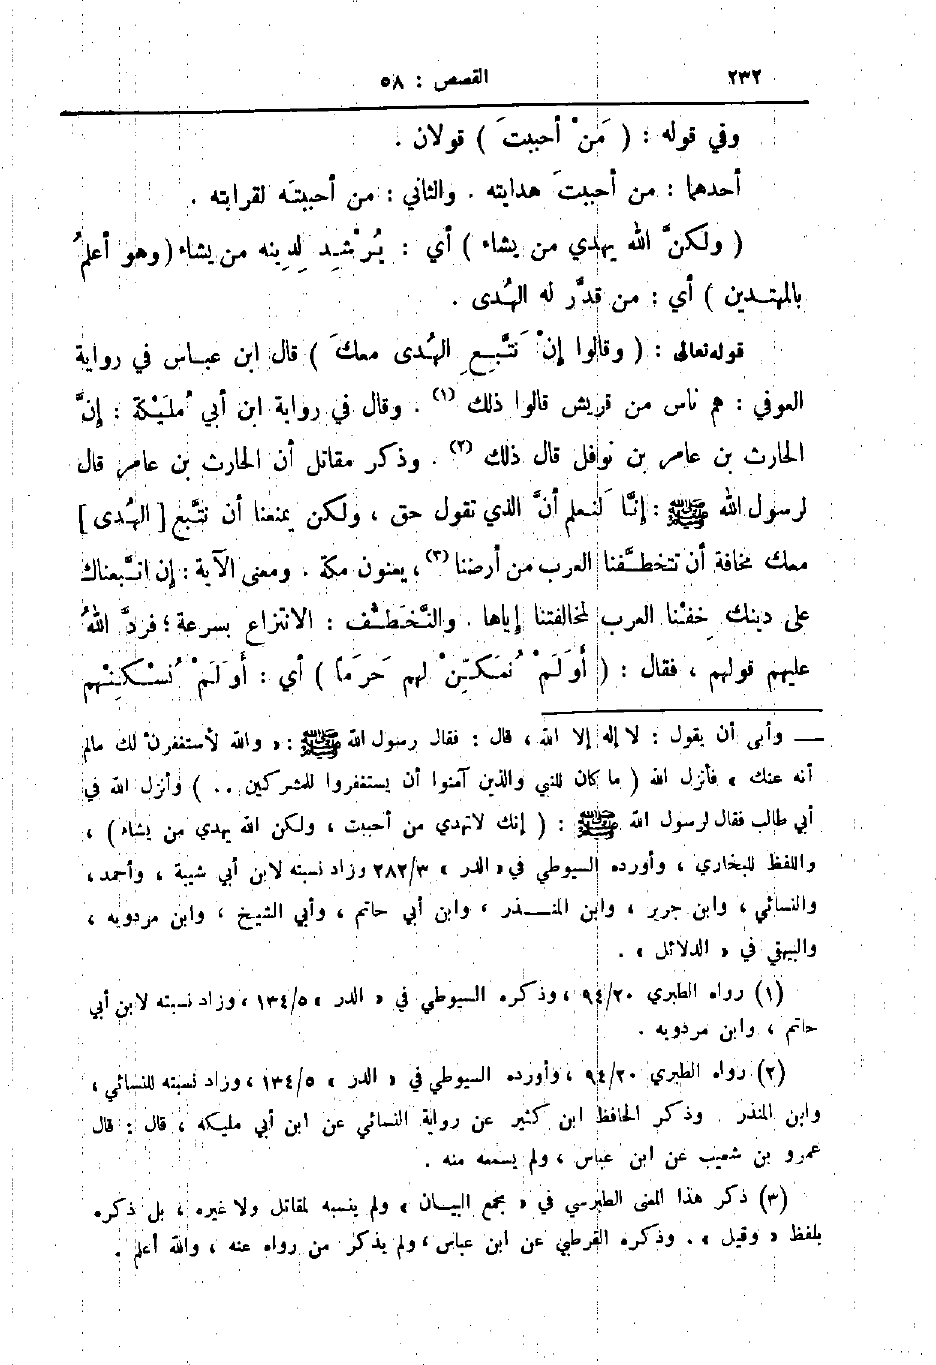 ٢٣٢ القصص : ٥٨
وفي قوله : ( مَنْ أحببتَ ) قولان .
أحدهما : من أحببتَ هدايته . والثاني : من أحببتَه لقرابته .
( ولكنَّ الله يهدي من يشاء ) أي : يُرْشِد لِدِينه من يشاء ( وهو أعلمُ
بالمهتدين ) أي : من قدَّر له الهُدى .
قوله تعالى : ( وقالوا إنْ نَتَّبِعِ الهُدى معكَ ) قال ابن عباس في رواية
العوفي : هم ناس من قريش قالوا ذلك (١) . وقال في رواية ابن أبي مُلَيْكة : إنَّ
الحارث بن عامر بن نوافل قال ذلك (٢) . وذكر مقاتل أن الحارث بن عامر قال
لرسول الله ﷺ : إنَّا لَنعلم أنَّ الذي تقول حق ، ولكن يمنعنا أن نتَّبع [ الهُدى ]
معك مخافة أن تتخطَّفنا العرب من أرضنا (٣) ، يعنون مكة . ومعنى الآية : إن اتَّبعناك
على دينك خِفْنا العرب لمخالفتنا إياها . والتَّخَطُّف : الانتزاع بسرعة ؛ فردَّ اللهُ
عليهم قولهم ، فقال : ( أَوَلَمْ نُمَكِّنْ لهم حَرَماً ) أي : أَوَلَمْ نُسْكِنْهم
ــ وأبى أن يقول : لا إله إلا الله ، قال : فقال رسول الله ﷺ : « والله لأستغفرنَّ لك مالم
أنه عنك » فأنزل الله ( ما كان للنبي والذين آمنوا أن يستغفروا للمشركين .. ) وأنزل الله في
أبي طالب فقال لرسول الله ﷺ : ( إنك لاتهدي من أحببت ، ولكن الله يهدي من يشاء ) ،
واللفظ للبخاري ، وأورده السيوطي في « الدر » ٢٨٢/٣ وزاد نسبته لابن أبي شيبة ، وأحمد ،
والنسائي ، وابن جرير ، وابن المنــذر ، وابن أبي حاتم ، وأبي الشيخ ، وابن مردويه ،
والبيهقي في « الدلائل » .
(١) رواه الطبري ٩٤/٢٠ ، وذكره السيوطي في « الدر » ١٣٤/٥ ، وزاد نسبته لابن أبي
حاتم ، وابن مردويه .
(٢) رواه الطبري ٩٤/٢٠ ، وأورده السيوطي في « الدر » ١٣٤/٥ ، وزاد نسبته للنسائي ،
وابن المنذر . وذكر الحافظ ابن كثير عن رواية النسائي عن ابن أبي مليكه ، قال : قال
عمرو بن شعيب عن ابن عباس ، ولم يسمعه منه .
(٣) ذكر هذا المعنى الطبرسي في « مجمع البيــان » ولم ينسبه لمقاتل ولا غيره ، بل ذكره
بلفظ « وقيل » . وذكره القرطبي عن ابن عباس ، ولم يذكر من رواه عنه ، والله أعلم .